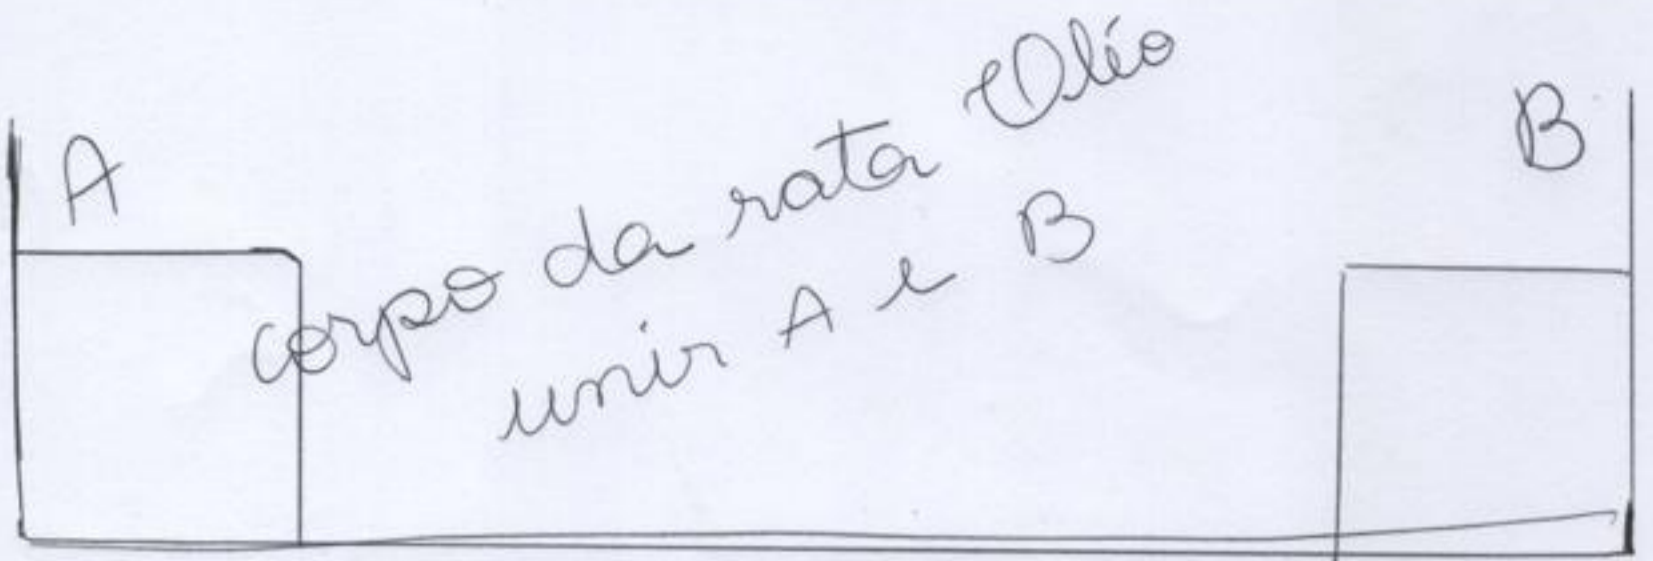 A
B
corpo da rata Oléo
unir A e B